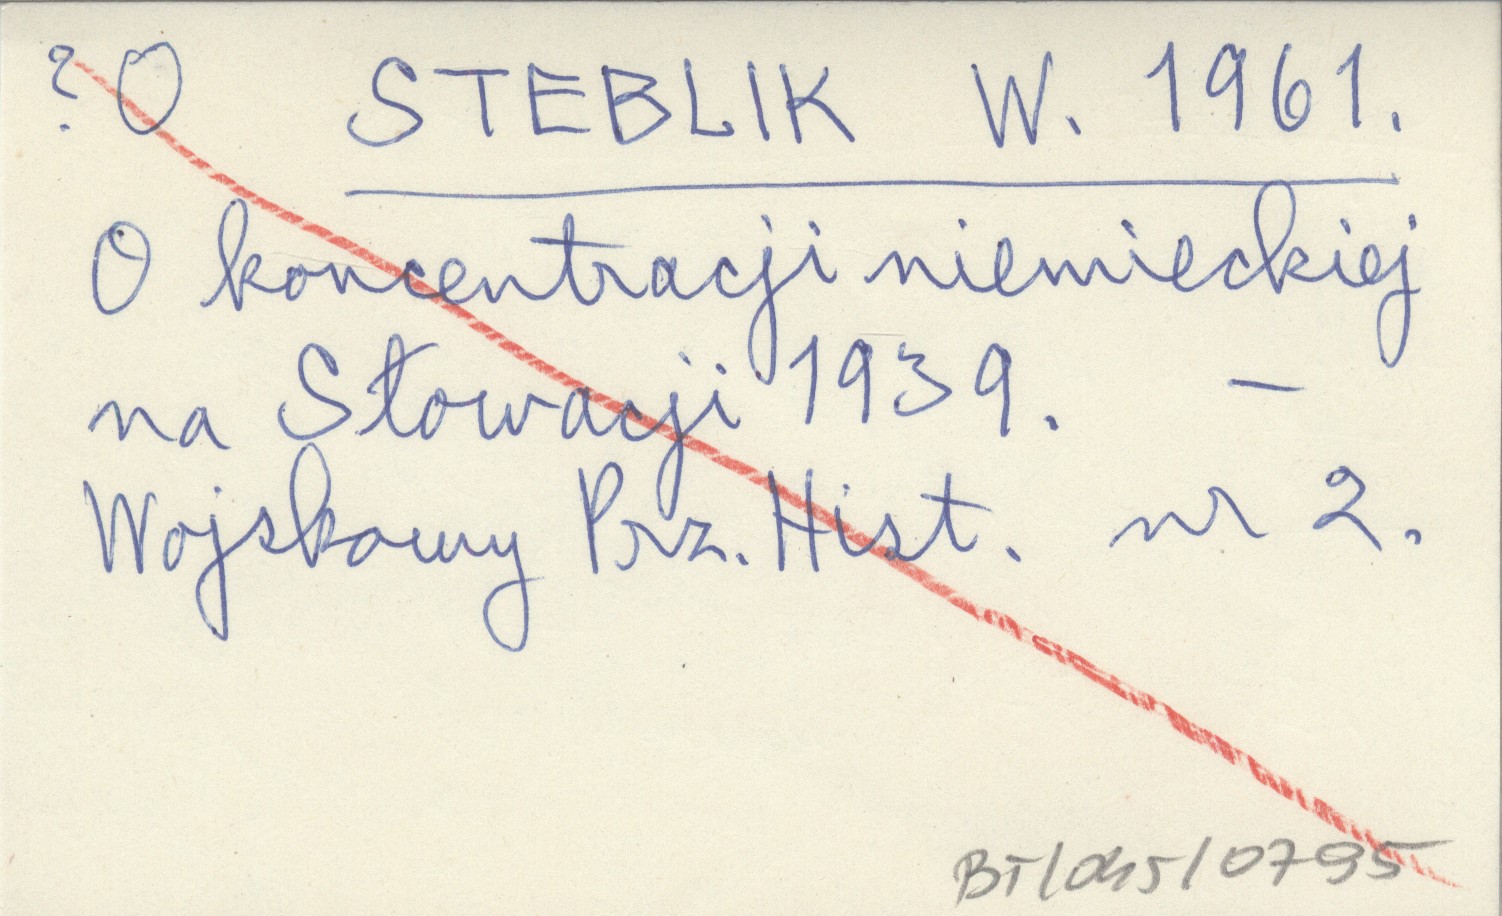 ? O STEBLIK W. 1961.
O koncentracji niemieckiej
na Słowacji 1939. —
Wojskowy Prz. Hist. nr 2.
BT/045/0795